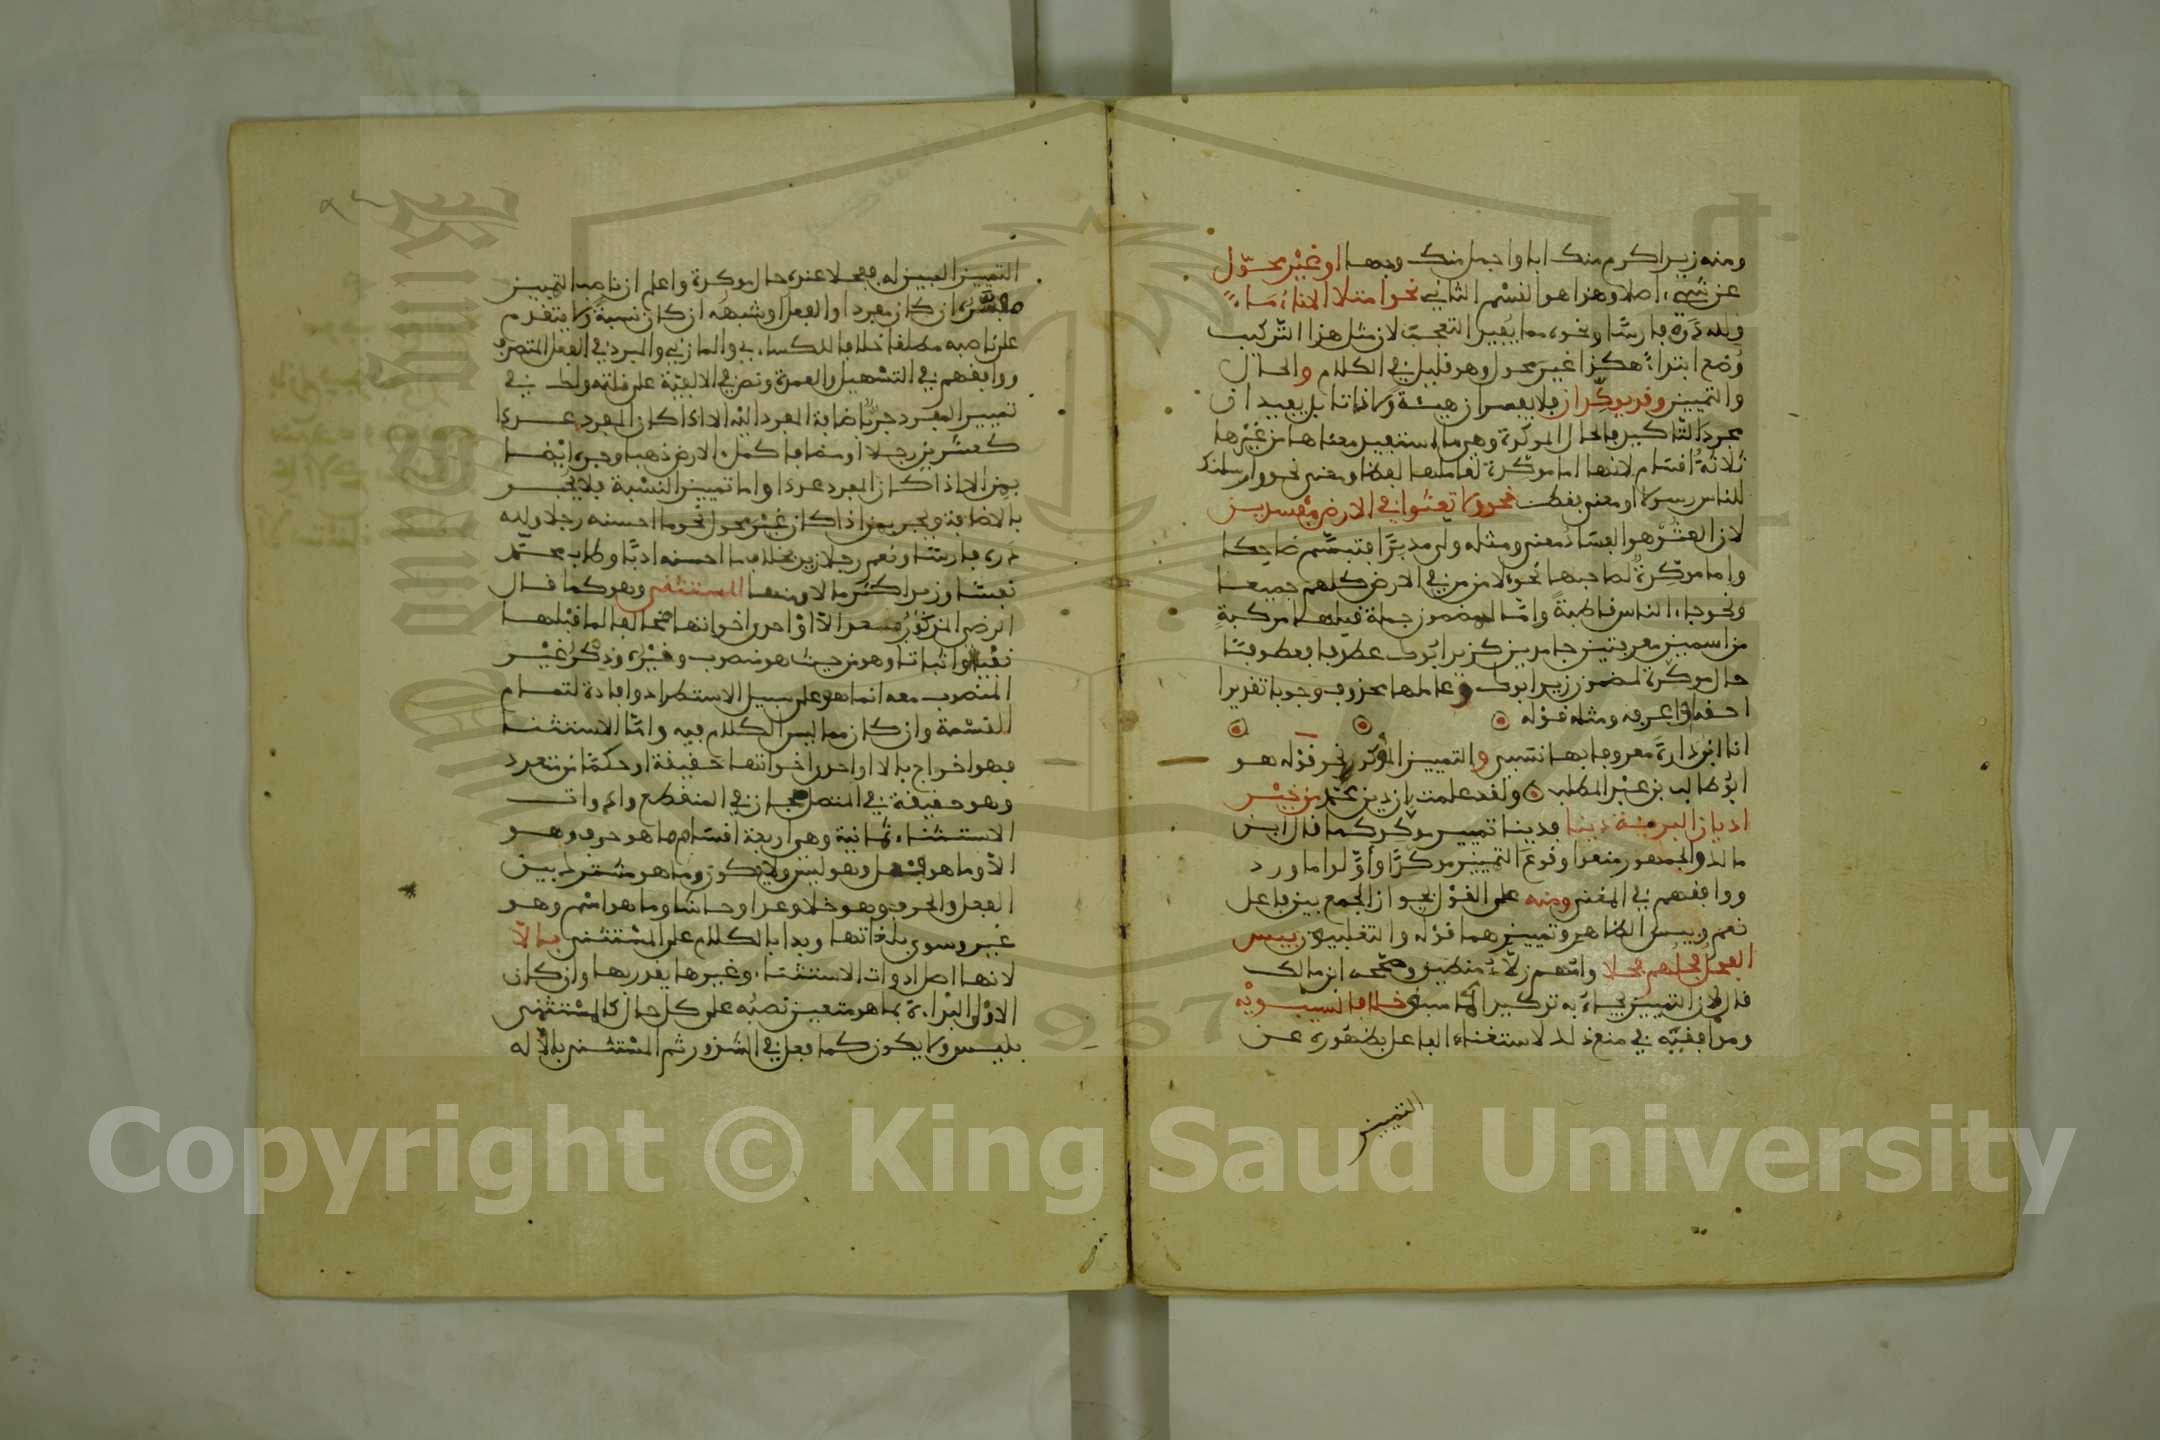 ومنه زيد اكرم منك ابا واجمل منك وجها او غير محوّل
عن شيء اصلا وهذا هو القسم الثاني نحو امتلا الاناء ماء
ولله درّه فارسًا ونحوه مما يفيد التعجب لان مثل هذا التركيب
وُضع ابتداءً هكذا غير محول وهو قليل في الكلام والحال
والتمييز وقد يوكّدان فلا يفصدان هيئة ولا ذاتا بل يفيدان
مجرد التاكيد فالحال الموكّدة وهي ما استفيد معناها من غيرها
ثلاثةُ اقسام لانها اما موكّدة لعاملها لفظا ومعنى نحو وارسلنك
للناس رسولا او معنى فقط نحو ولا تعثوا في الارض مفسدين
لان العثُوّ هو الفساد معنى ومثله ولى مدبرًا فتبسّم ضاحكا
واما موكّدةٌ لصاحبها نحو لامن من في الارض كلهم جميعا
ونحو جاء الناس قاطبةً وامّا لمضمون جملة قبلها مركبةٍ
من اسمين معرفتين جامدين كزيد ابوك عطوفا فعطوفًا
حال موكّدة لمضمون زيد ابوك وعاملها محذوف وجوبا تقديره
احقه او اعرفه ومثله قوله
انا ابن دارةَ معروفا بها نسبي والتمييز الموكّد نحو قوله هو
ابو طالب بن عبد المطلب ولقد علمت بان دين محمّد من خير
اديان البريئة دينا فدينا تمييز موكّد كما قال ابن
مالك والجمهور منعوا وقوعَ التمييز موكدًا واوّلوا ما ورد
ووافقهم في المغني ومنه على القول بجواز الجمع بين فاعل
نعم وبيس الظاهر وتمييزهما قوله والتغلبيون بيس
الفحلُ فحلُهم فحلا وامّهم زلّاءُ منطيق وصححه ابن مالك
قال لان التمييز يجاء به توكيدا كما سبق خلافا لسيبويْه
وموافقيّه في منع ذلك لاستغناء الفاعل بظهوره عن
التمييز
التمييز المبين له ففحلا عنده حال موكدة واعلم ان ناصب التمييز
ان كان مفردا والفعل او شبهُه ان كان نسبةً ولا يتقدم
على ناصبه مطلقا خلافا للكساءي والمازني والمبرد في الفعل المتصرف
ووافقهم في التسْهيل والعمدة ونص في الالفيّة على قلته ولك في
تمييز المفرد جرّه باضافة المفرد اليْه الا اذا كان المفرد عددا
كعشْرين رجلا او مضافا كملء الارض ذهبا وجره ايْضا
بمن الا اذا كان المفرد عددا واما تمييز النسْبة فلا يجر
بالاضافة ويجر بمن اذا كان غيْر محول نحو ما احسنه رجلا ولله
دره فارسًا ونعم رجلا زيد بخلاف ما احسنه ادبًا وطاب محمّد
نفسًا وزيد اكثر مالا ومنها المستثنى وهو كما قال
الرضي المذكورُ بعد الّا او احدى اخواتها مخالفا لما قبلها
نفيا واثباتا وهو من حيث هو منصوب وغيْره وذكرُ غيْر
المنصوب معه انما هو على سبيل الاستطراد وافادة لتمام
القسْمة وان كان مما ليس الكلام فيه وامّا الاستثنا
فهو اخراج بالا او احدى اخواتها حقيقة او حكمًا من متعدد
وهو حقيقة في المتصل مجاز في المنقطع وادوات
الاستثناء ثمانية وهي اربعة اقسام ما هو حرف وهو
الّا وما هو فعل وهو ليس ولا يكون وما هو مشترك بين
الفعل والحرف وهو خلا وعدا وحاشا وما هو اسْم وهو
غير وسوى بلغاتها وبدا بالكلام على المسْتثنى بالّا
لانها اصل ادوات الاستثناء وغيرها يقدر بها وان كان
الاوْلى البداءةَ بما هو متعين نصبُه على كل حال كالمسْتثنى
بليس ولا يكون كما فعل في الشذور ثم المسْتثنى بالّا له
Copyright © King Saud University
King Saud University
1957